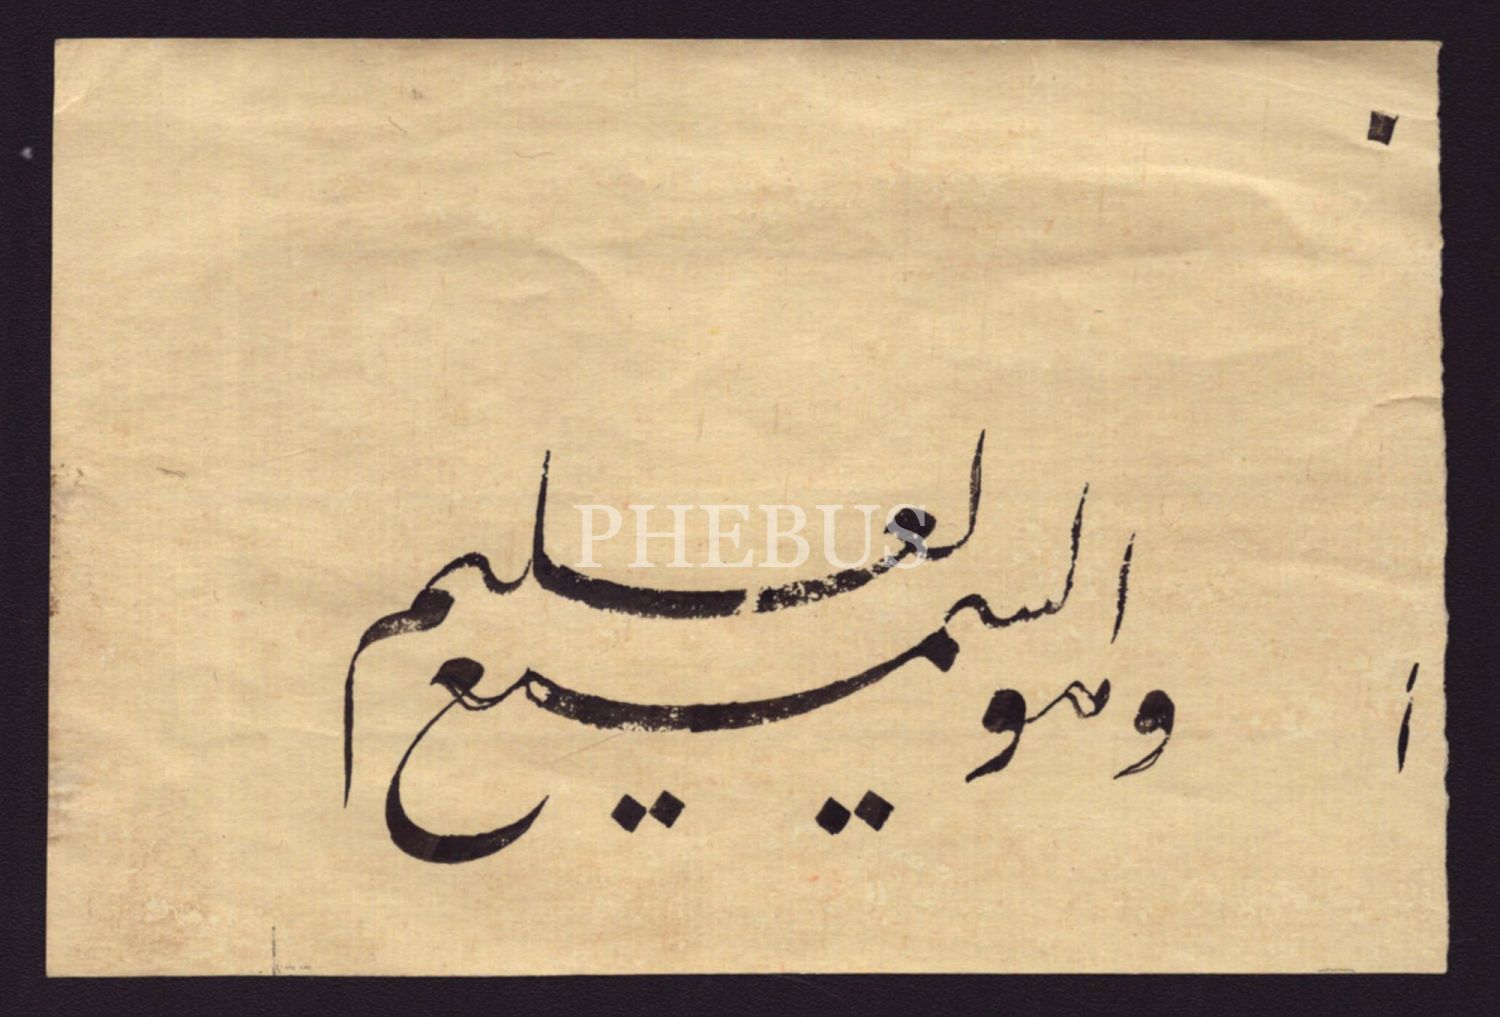 وهو السميع العليم
PHEBUS